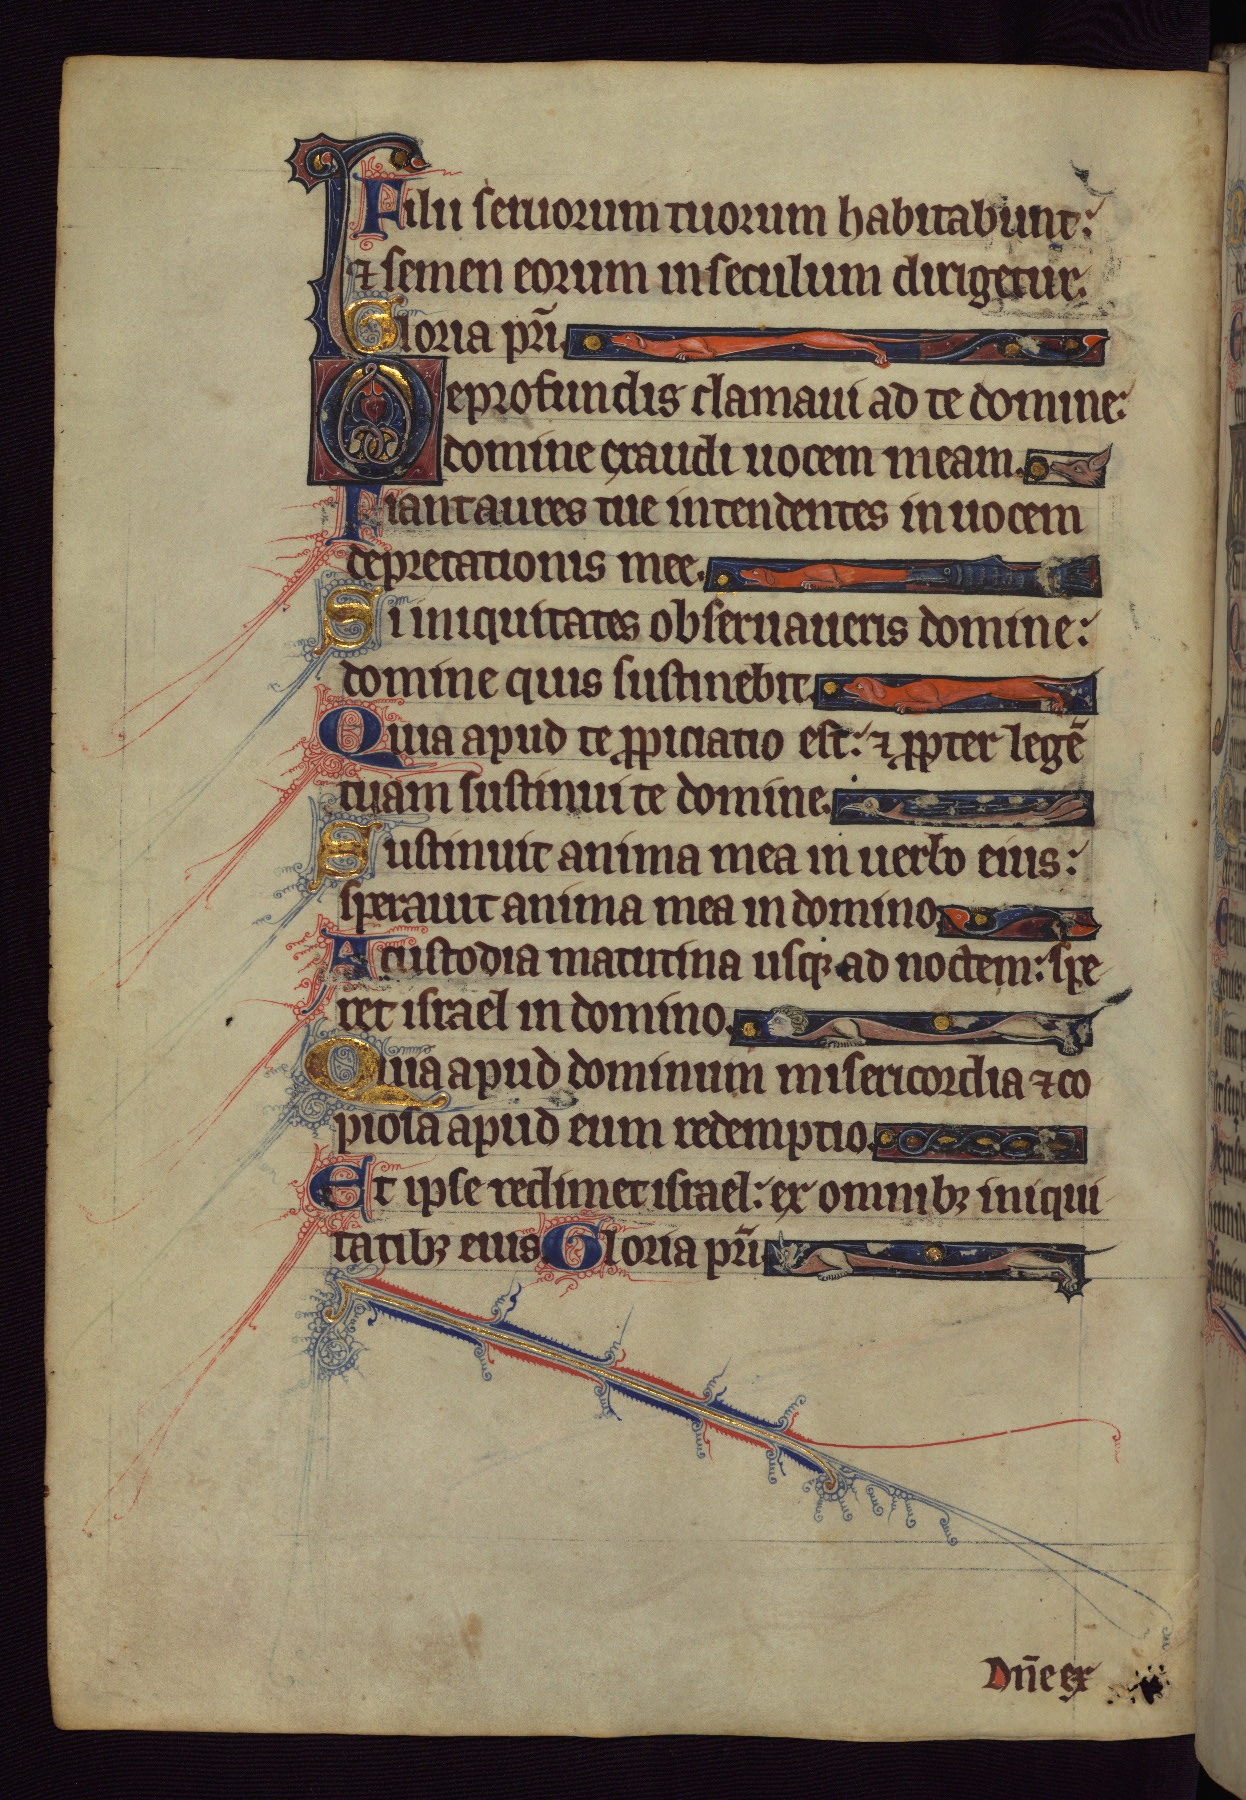 Filii seruorum tuorum habitabunt:
⁊ semen eorum in seculum dirigetur.
Gloria pr̄i.
De profundis clamaui ad te domine:
domine exaudi uocem meam.
Fiant aures tue intendentes in uocem
deprecationis mee.
Si iniquitates obseruaueris domine:
domine quis sustinebit.
Quia apud te ꝓpiciatio est: ⁊ ꝓpter legē
tuam sustinui te domine.
Sustinuit anima mea in uerbo eius:
sperauit anima mea in domino.
A custodia matutina usqꝫ ad noctem: spe
ret israel in domino.
Quia apud dominum misericordia ⁊ co
piosa apud eum redemptio.
Et ipse redimet israel: ex omnibꝫ iniqui
tatibꝫ eius Gloria pr̄i.
Dn̄e ex